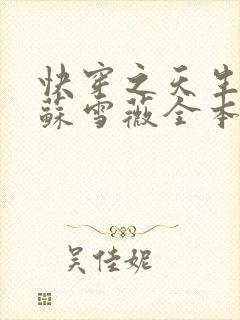 快穿之天生
苏雪薇全本
吴佳妮